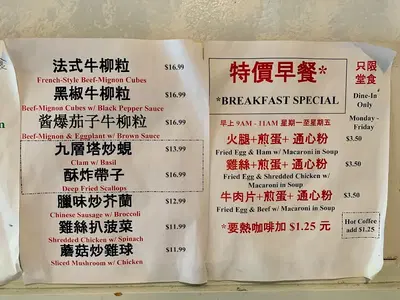 法式牛柳粒 $16.99
French-Style Beef-Mignon Cubes
黑椒牛柳粒 $16.99
Beef-Mignon Cubes w/ Black Pepper Sauce
酱爆茄子牛柳粒 $16.99
Beef-Mignon & Eggplant w/ Brown Sauce
九層塔炒蜆 $13.99
Clam w/ Basil
酥炸帶子 $16.99
Deep Fried Scallops
臘味炒芥蘭 $12.99
Chinese Sausage w/ Broccoli
雞絲扒菠菜 $11.99
Shredded Chicken w/ Spinach
蘑菇炒雞球 $11.99
Sliced Mushroom w/ Chicken
特價早餐*
*BREAKFAST SPECIAL
只限
堂食
Dine-In
Only
Monday -
Friday
早上 9AM - 11AM 星期一至星期五
火腿+煎蛋+ 通心粉 $3.50
Fried Egg & Ham w/ Macaroni in Soup
雞絲+煎蛋+ 通心粉 $3.50
Fried Egg & Shredded Chicken w/
Macaroni in Soup
牛肉片+煎蛋+ 通心粉 $3.50
Fried Egg & Beef w/ Macaroni in Soup
*要熱咖啡加 $1.25 元
Hot Coffee
add $1.25